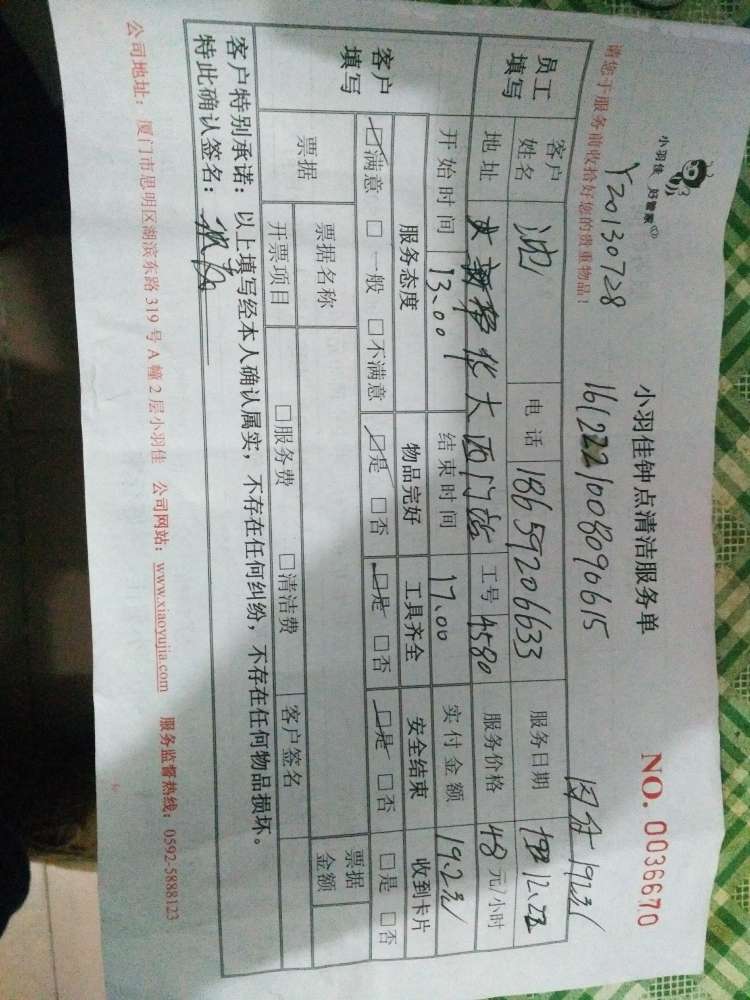 小羽佳 好管家
小羽佳钟点清洁服务单
NO. 0036670
Y20130728
1612221008090615
请您于服务前收拾好您的贵重物品!
员工填写
客户姓名 沈 电话 18659206633 服务日期 12.22
地址 大西门站 工号 4580 服务价格 48 元/小时
开始时间 13.00 结束时间 17.00 实付金额 192元
客户填写
服务态度 物品完好 工具齐全 安全结束 收到卡片
☑满意 □一般 □不满意 ☑是 □否 ☑是 □否 ☑是 □否 □是 □否
票据 票据名称 票据金额
开票项目 □服务费 □清洁费 客户签名
客户特别承诺:以上填写经本人确认属实,不存在任何纠纷,不存在任何物品损坏。
特此确认签名:
公司地址:厦门市思明区湖滨东路 319 号 A 幢 2 层小羽佳 公司网站:www.xiaoyujia.com 服务监督热线:0592-5888123